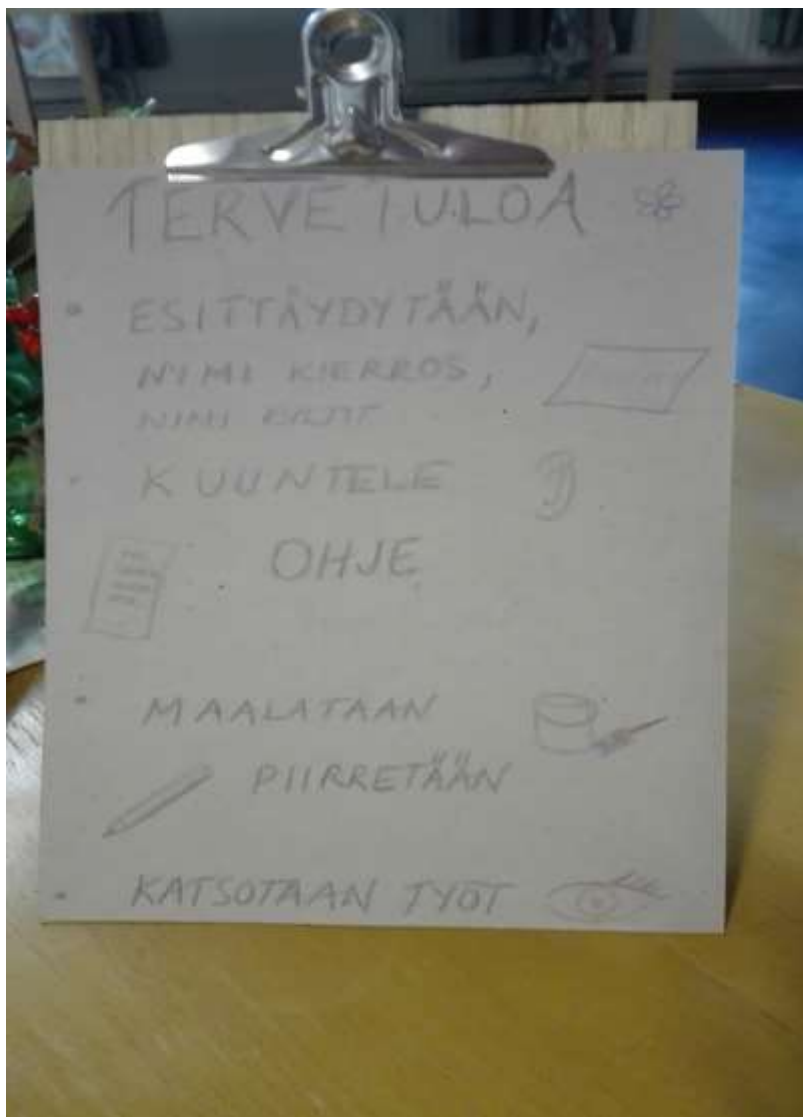 TERVETULOA
ESITTÄYDYTÄÄN,
NIMI KIERROS,
NIMI
KUUNTELE
OHJE
MAALATAAN
PIIRRETÄÄN
KATSOTAAN TYÖT